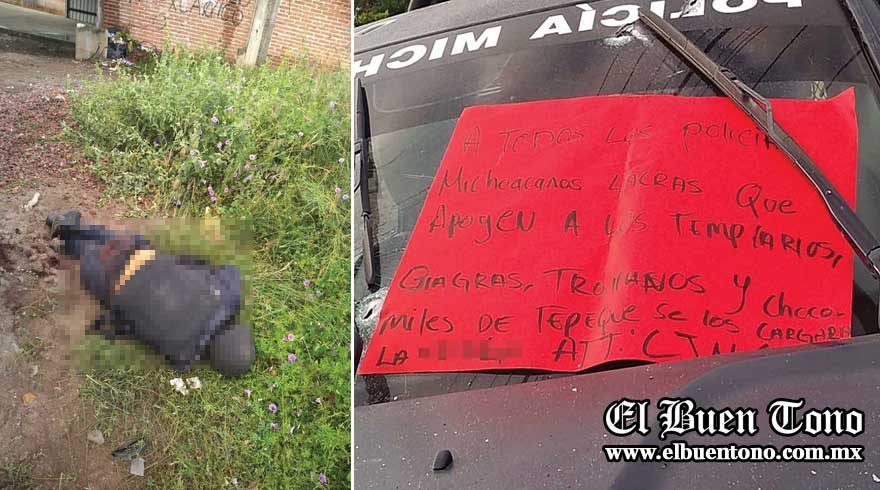 POLICÍA MICH
A TODOS LOS POLICIA
MICHOACANOS LACRAS QUE
APOYEN A LOS TEMPLARIOS,
GIAGRAS, TROYANOS Y Choco-
MILES DE TEPEQUE SE LOS CARGARA
LA ATT: CJN
El Buen Tono
www.elbuentono.com.mx